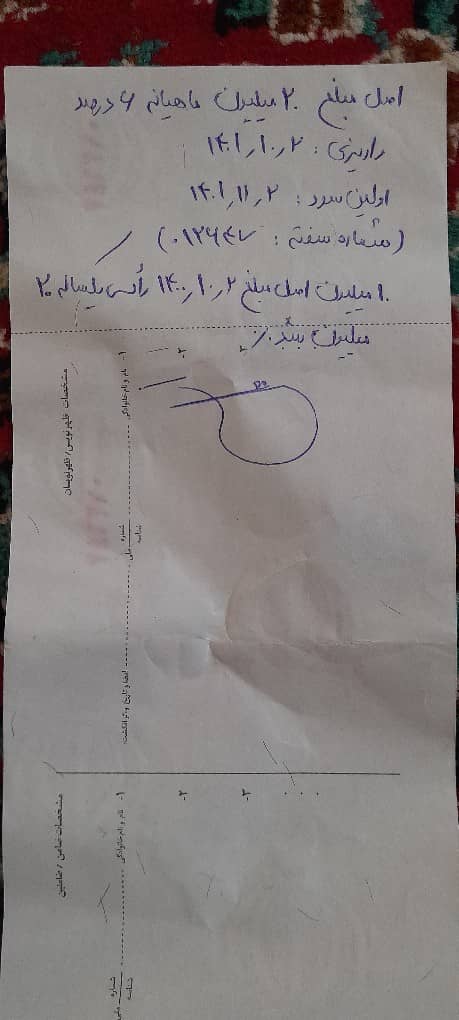 اصل مبلغ ۲۰ میلیون ماهیانه ۶ درصد
واریزی : ۱۴۰۱٫۱۰٫۲
اولین سود : ۱۴۰۱٫۱۱٫۲
(شماره سفته : ۰۱۲۶۴۷)
۱۰ میلیون اصل مبلغ ۱۴۰۰٫۱۰٫۲ رأس یکساله ۲۰
میلیون
مشخصات ظهرنویس / ظهرنویسان
۱- نام و نام خانوادگی شماره / شناسه ملی امضا و تاریخ و اثر انگشت
۲-
۳-
مشخصات ضامن / ضامنین
۱- نام و نام خانوادگی شماره / شناسه ملی
۲-
۳-